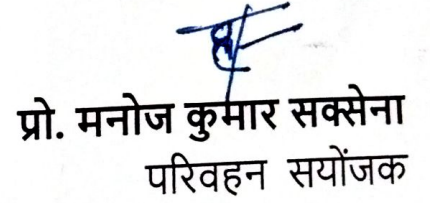 प्रो. मनोज कुमार सक्सेना
परिवहन सयोंजक